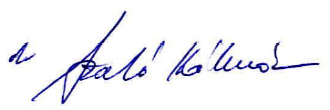 dr Szabó Kálmán